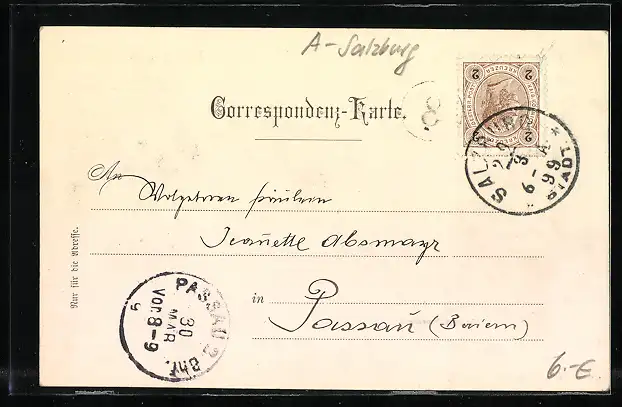 A-Salzburg
Correspondenz-Karte.
2 KREUZER 2
2
SALZBURG STADT
3 99
6-A
8
An
Wolgeboren Fräulein
Jeanette Absmayr
in Passau (Baiern)
Nur für die Adresse.
PASSAU 2 Bhf.
30 MAR
Vor. 8-9
6.-€